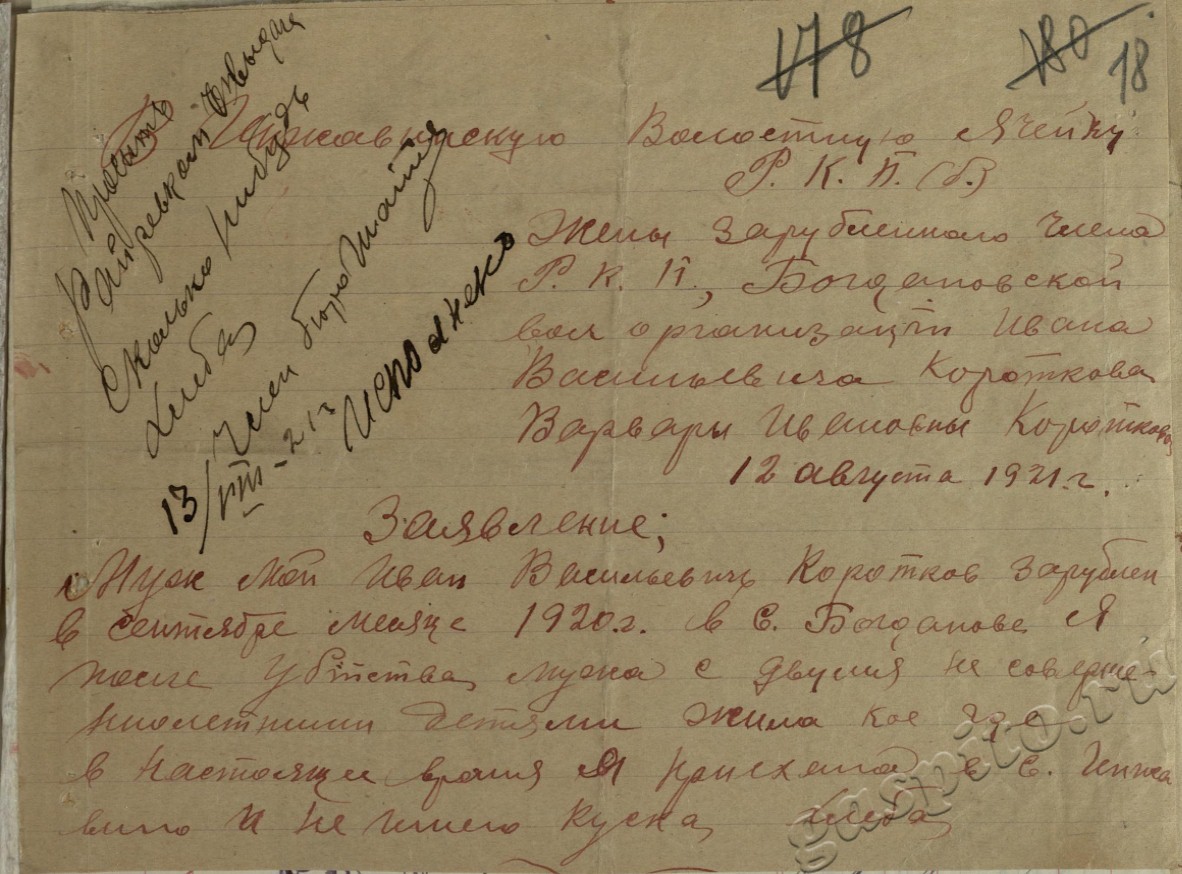 178
180
18
В Инжавинскую Волостную Ячейку
Р. К. П. (б.)
Жены зарубленного члена
Р. К. П., Богдановской
вол организации Ивана
Васильевича Короткова
Варвары Ивановны Коротковой
12 августа 1921 г.
Просить
Райревком выдать
сколько нибудь
хлеба
Член бюро
13/VIII-21 г
Исполнено
Заявление;
Муж мой Иван Васильевичъ Коротков зарублен
в сентябре месяце 1920 г. в с. Богданове Я
после убийства мужа с двумя не соверше-
ннолетними детями жила кое где
в настоящее время я приехала в с. Инжа
вино и не имею куска хлеба
gaspito.ru